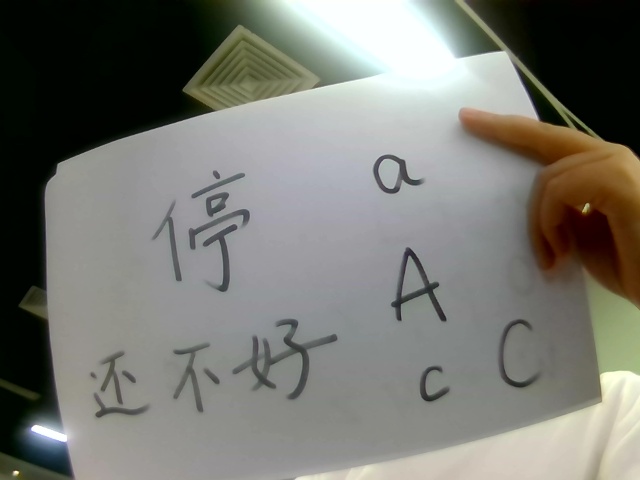 停
a
A
还不好
c C